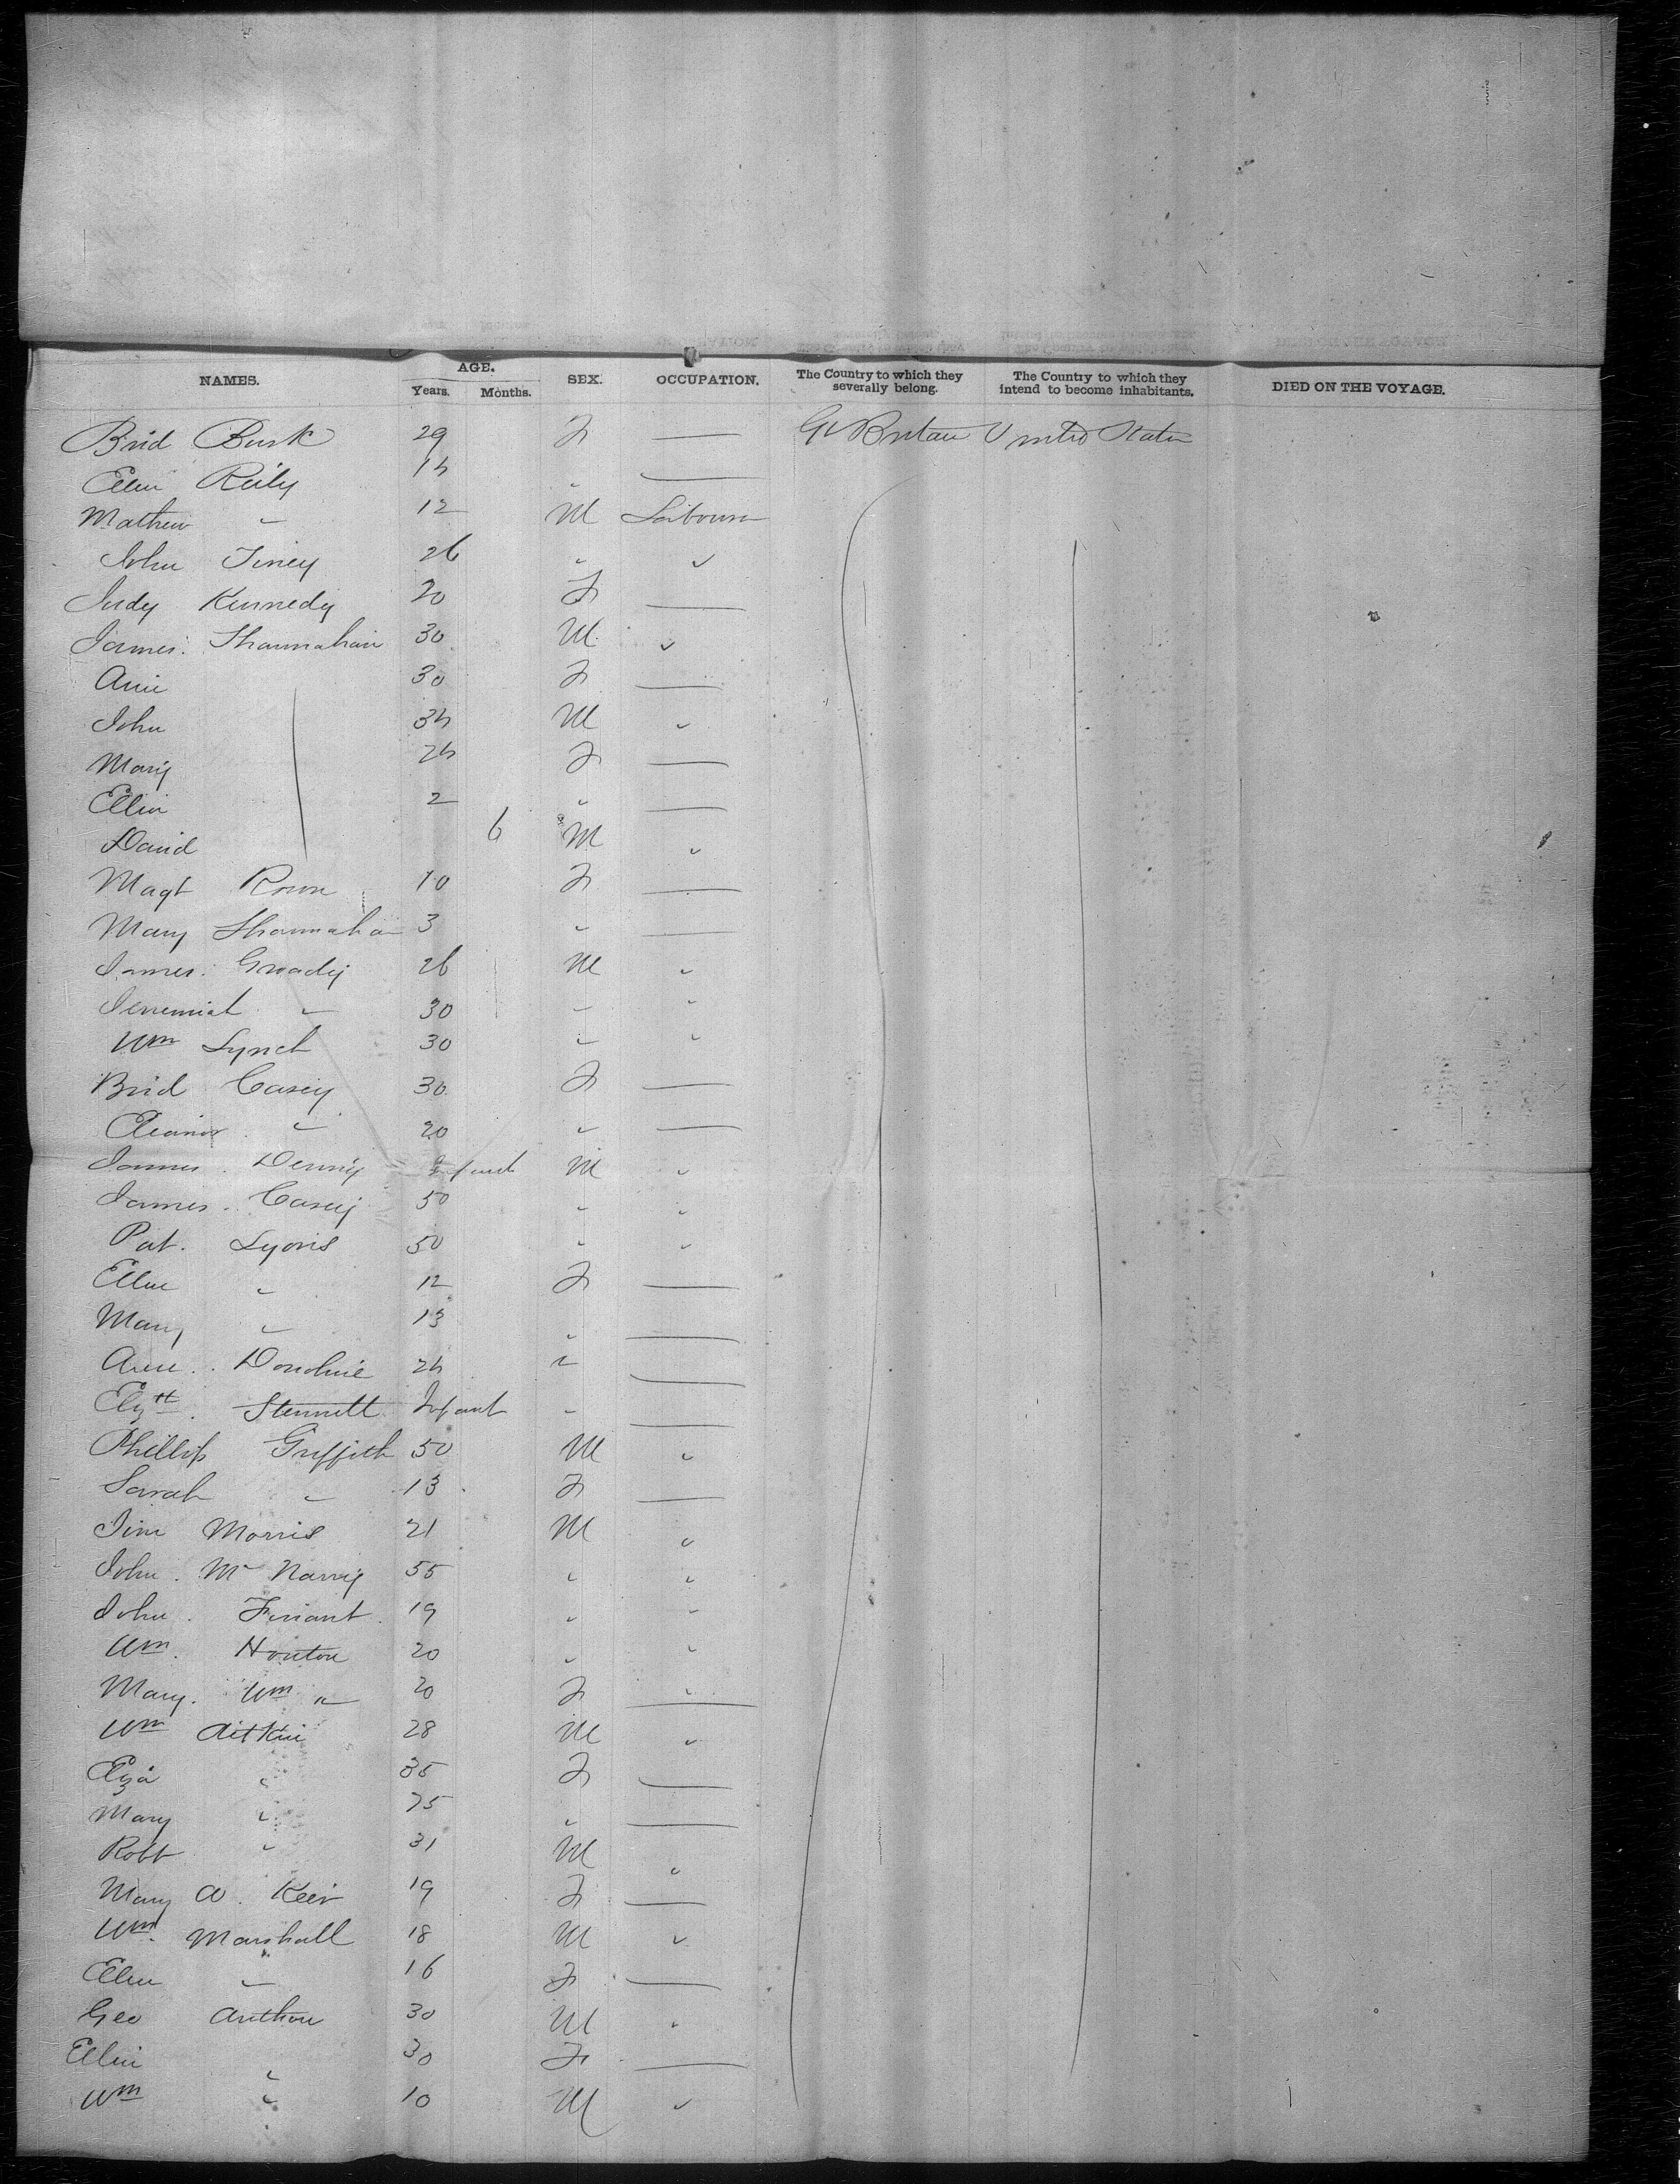 NAMES. AGE. SEX. OCCUPATION. The Country to which they severally belong. The Country to which they intend to become inhabitants. DIED ON THE VOYAGE.
Years. Months.
Brid Burk 29 F — Gt Britain United States
Ellen Reily 14 " —
Mathew " 12 M Labourer
John Finey 26 " "
Judy Kennedy 20 F —
James Shannahan 30 M "
Ann 30 F —
John 34 M "
Mary 24 F —
Ellen 2 " —
David 6 M "
Magt 10 F —
Mary Shannahan 3 " —
James Groady 26 M "
Jeremiah " 30 " "
Wm Lynch 30 " "
Brid Casey 30 F —
Eleanor " 20 " —
James Denny Infant M "
James Casey 50 " "
Pat. Lyons 50 " "
Ellen " 12 F —
Mary " 13 " —
Ann Donohue 24 " —
Elzth Stennett Infant " —
Phillip Griffith 50 M "
Sarah " 13 F —
Jim Morris 21 M "
John Mc 55 " "
John 19 " "
Wm. Houton 20 " "
Mary. Wm " 20 F " —
Wm Aitkin 28 M "
Eza " 35 F —
Mary " 75 " —
Robt " 31 M "
Mary A. Keir 19 F —
Wm. Marshall 18 M "
Ellen " 16 F —
Geo 30 M "
Ellen " 30 F —
Wm " 10 M "